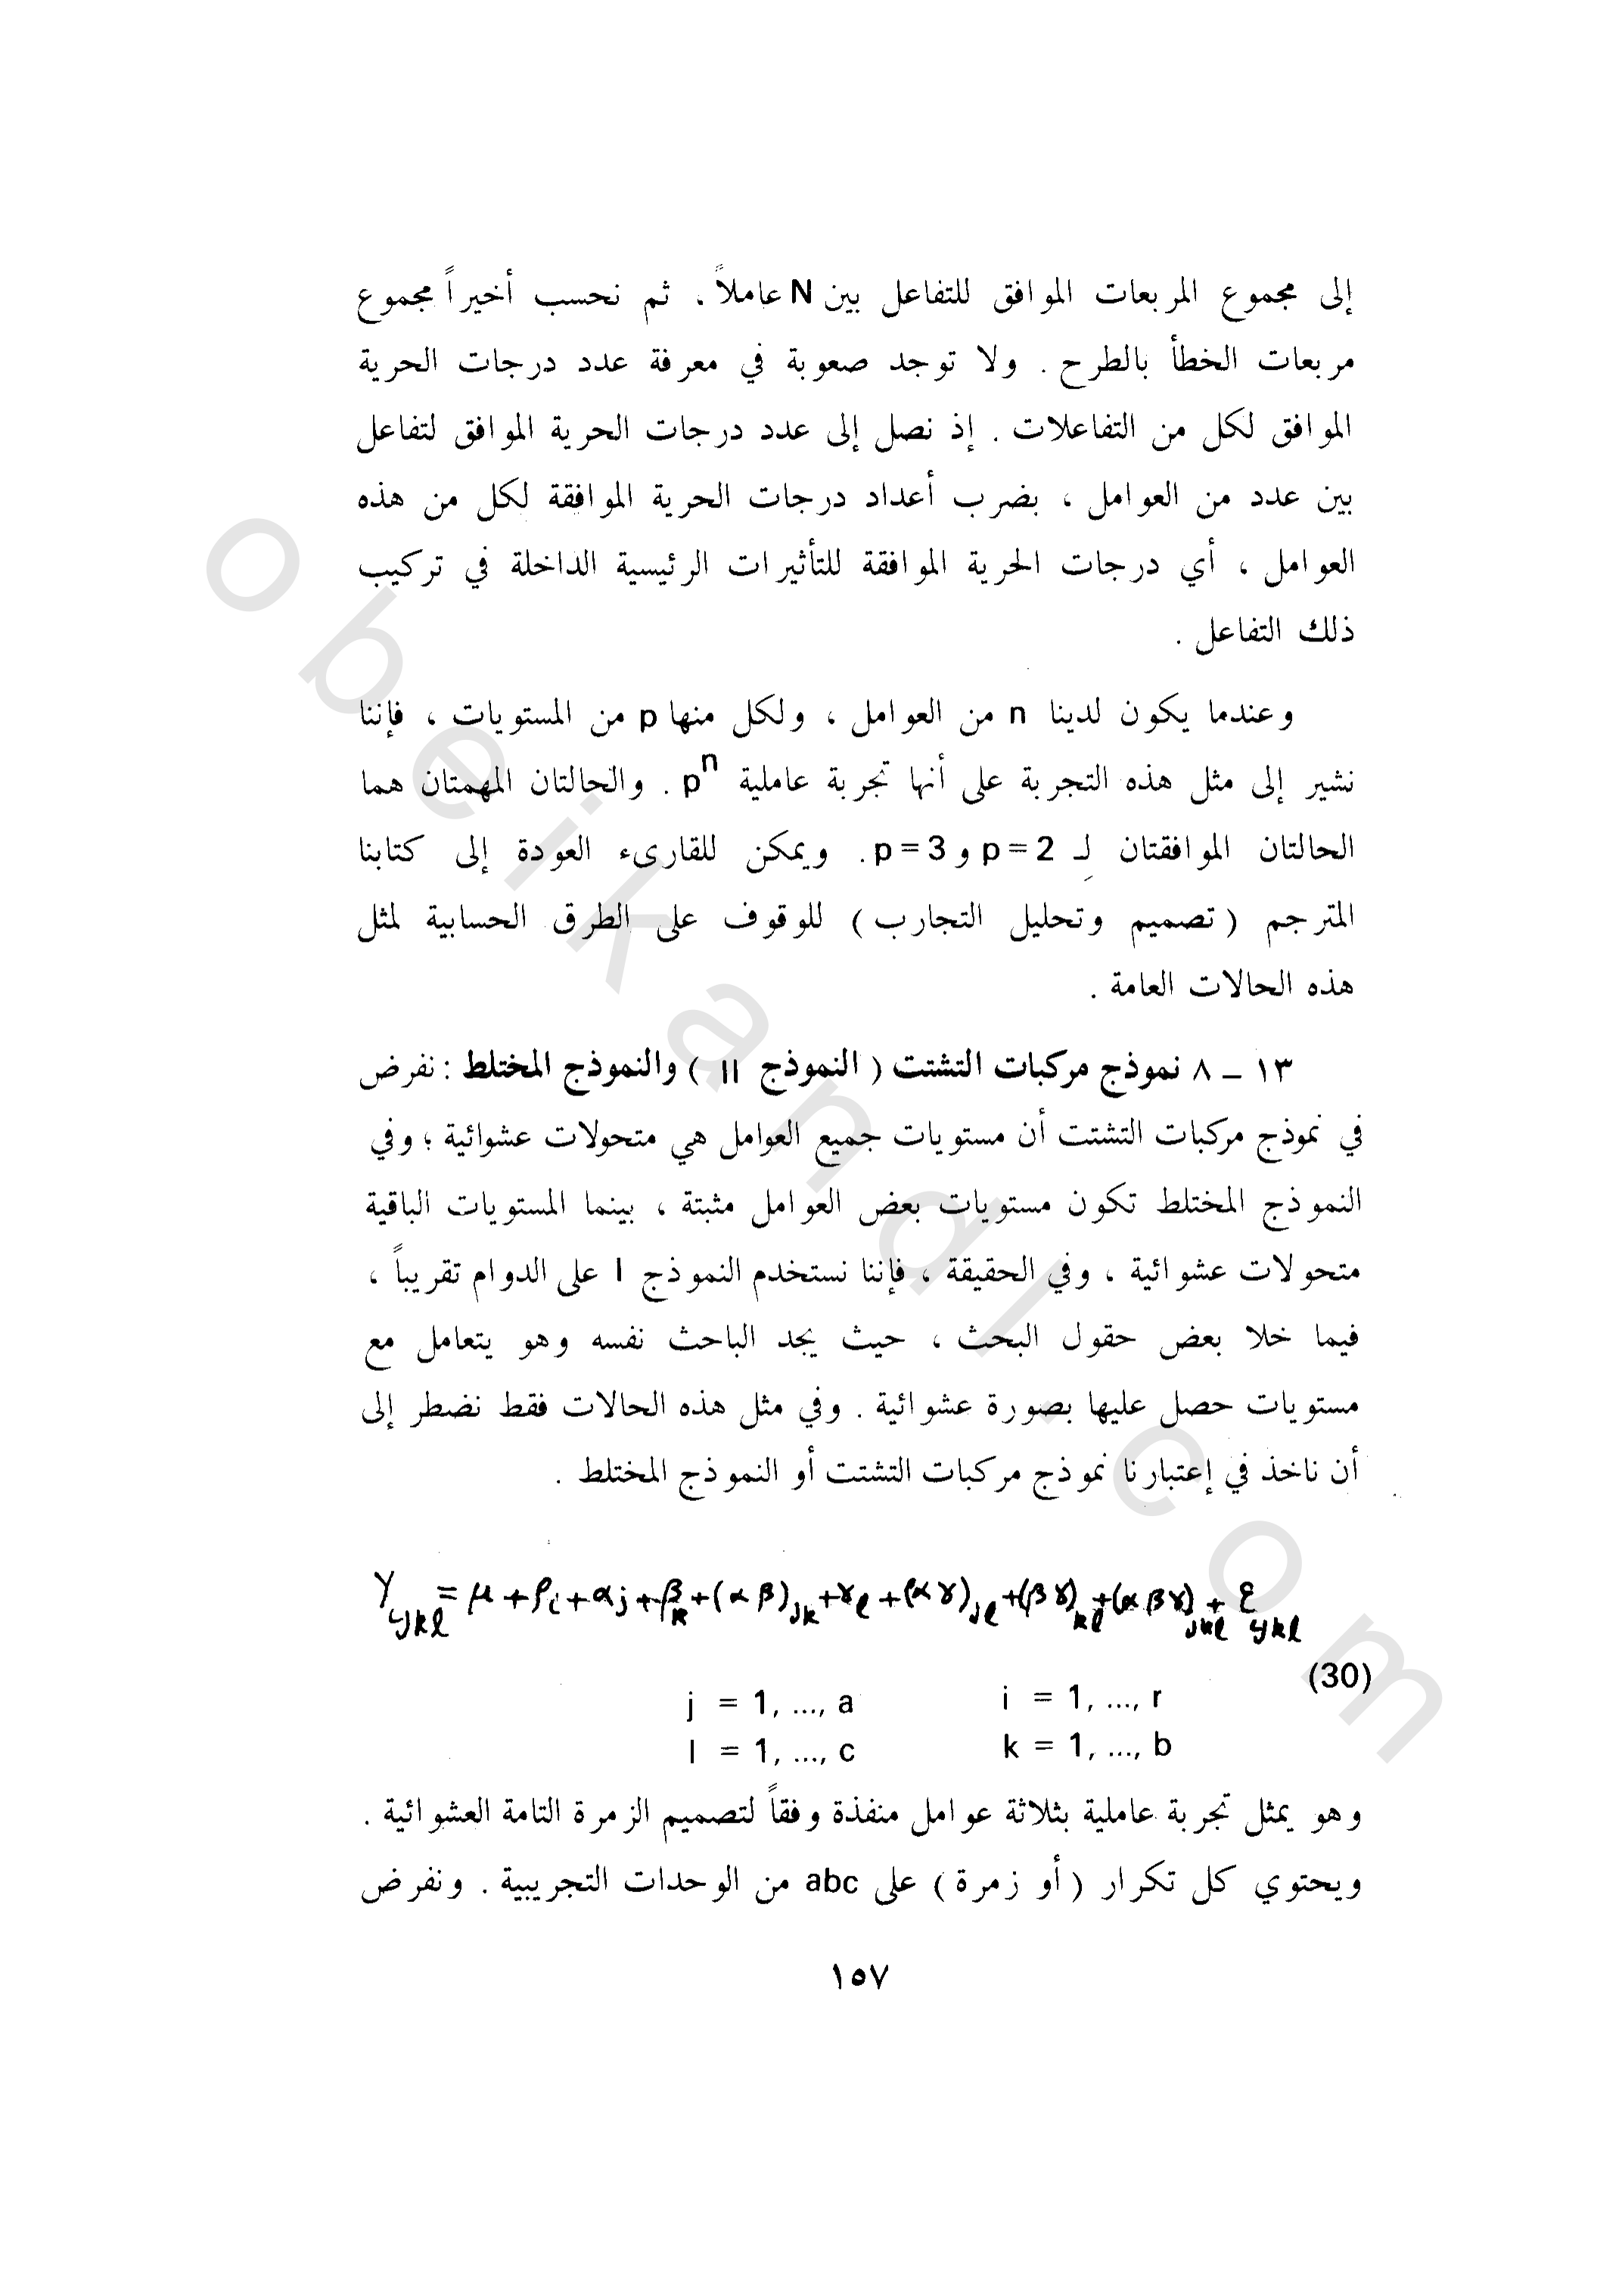 إلى مجموع المربعات الموافق للتفاعل بين N عاملاً ، ثم نحسب أخيراً مجموع
مربعات الخطأ بالطرح . ولا توجد صعوبة في معرفة عدد درجات الحرية
الموافق لكل من التفاعلات . إذ نصل إلى عدد درجات الحرية الموافق لتفاعل
بين عدد من العوامل ، بضرب أعداد درجات الحرية الموافقة لكل من هذه
العوامل ، أي درجات الحرية الموافقة للتأثيرات الرئيسية الداخلة في تركيب
ذلك التفاعل .
وعندما يكون لدينا n من العوامل ، ولكل منها p من المستويات ، فإننا
نشير إلى مثل هذه التجربة على أنها تجربة عاملية pⁿ . والحالتان المهمتان هما
الحالتان الموافقتان لـ p = 2 و p = 3 . ويمكن للقارىء العودة إلى كتابنا
المترجم ( تصميم وتحليل التجارب ) للوقوف على الطرق الحسابية لمثل
هذه الحالات العامة .
١٣ ــ ٨ نموذج مركبات التشتت ( النموذج II ) والنموذج المختلط : نفرض
في نموذج مركبات التشتت أن مستويات جميع العوامل هي متحولات عشوائية ؛ وفي
النموذج المختلط تكون مستويات بعض العوامل مثبتة ، بينما المستويات الباقية
متحولات عشوائية ، وفي الحقيقة ، فإننا نستخدم النموذج I على الدوام تقريباً ،
فيما خلا بعض حقول البحث ، حيث يجد الباحث نفسه وهو يتعامل مع
مستويات حصل عليها بصورة عشوائية . وفي مثل هذه الحالات فقط نضطر إلى
أن ناخذ في إعتبارنا نموذج مركبات التشتت أو النموذج المختلط .
Y_ijkl = μ + ρ_i + α_j + β_k + (αβ)_jk + γ_l + (αγ)_jl + (βγ)_kl + (αβγ)_jkl + ε_ijkl
(30)
j = 1, ..., a i = 1, ..., r
l = 1, ..., c k = 1, ..., b
وهو يمثل تجربة عاملية بثلاثة عوامل منفذة وفقاً لتصميم الزمرة التامة العشوائية .
ويحتوي كل تكرار ( أو زمرة ) على abc من الوحدات التجريبية . ونفرض
١٥٧
obeikandl.com